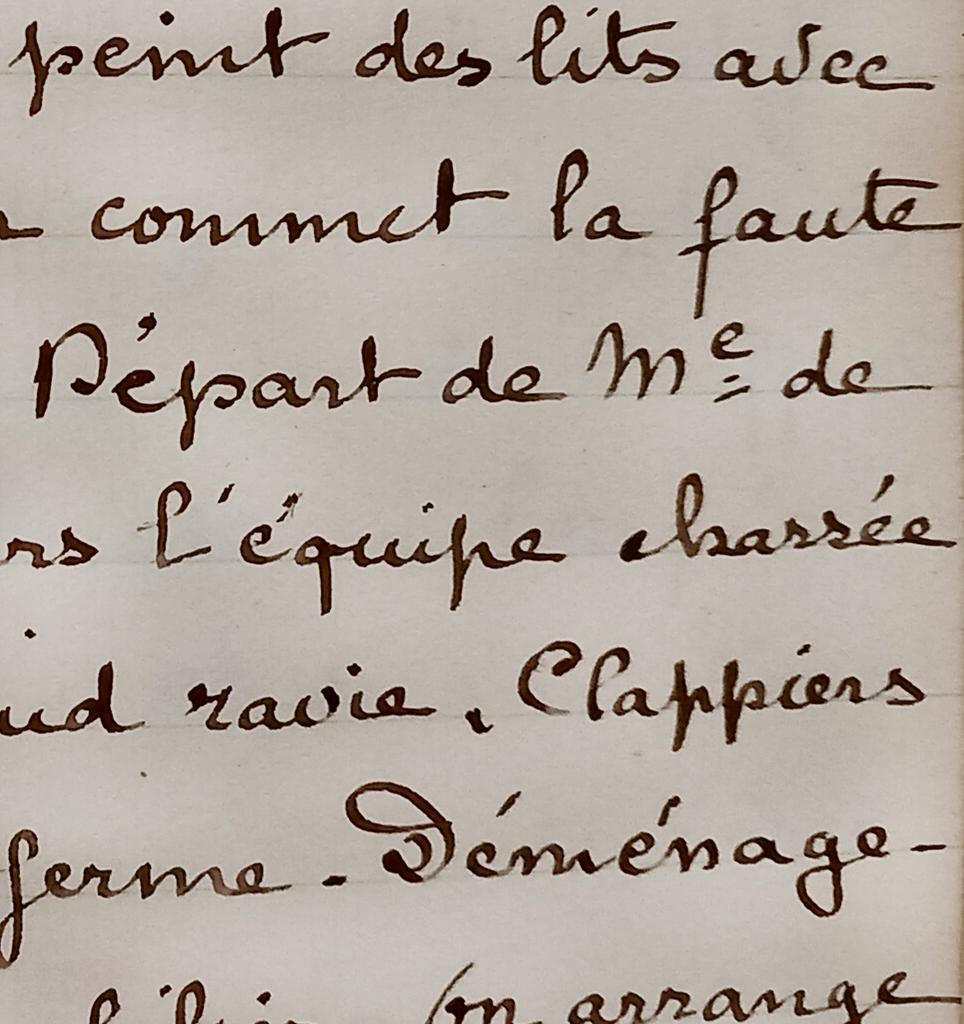 peint des lits avec
commet la faute
Départ de Me de
rs l'équipe chassée
ud ravie. Clappiers
ferme - Déménage-
On arrange